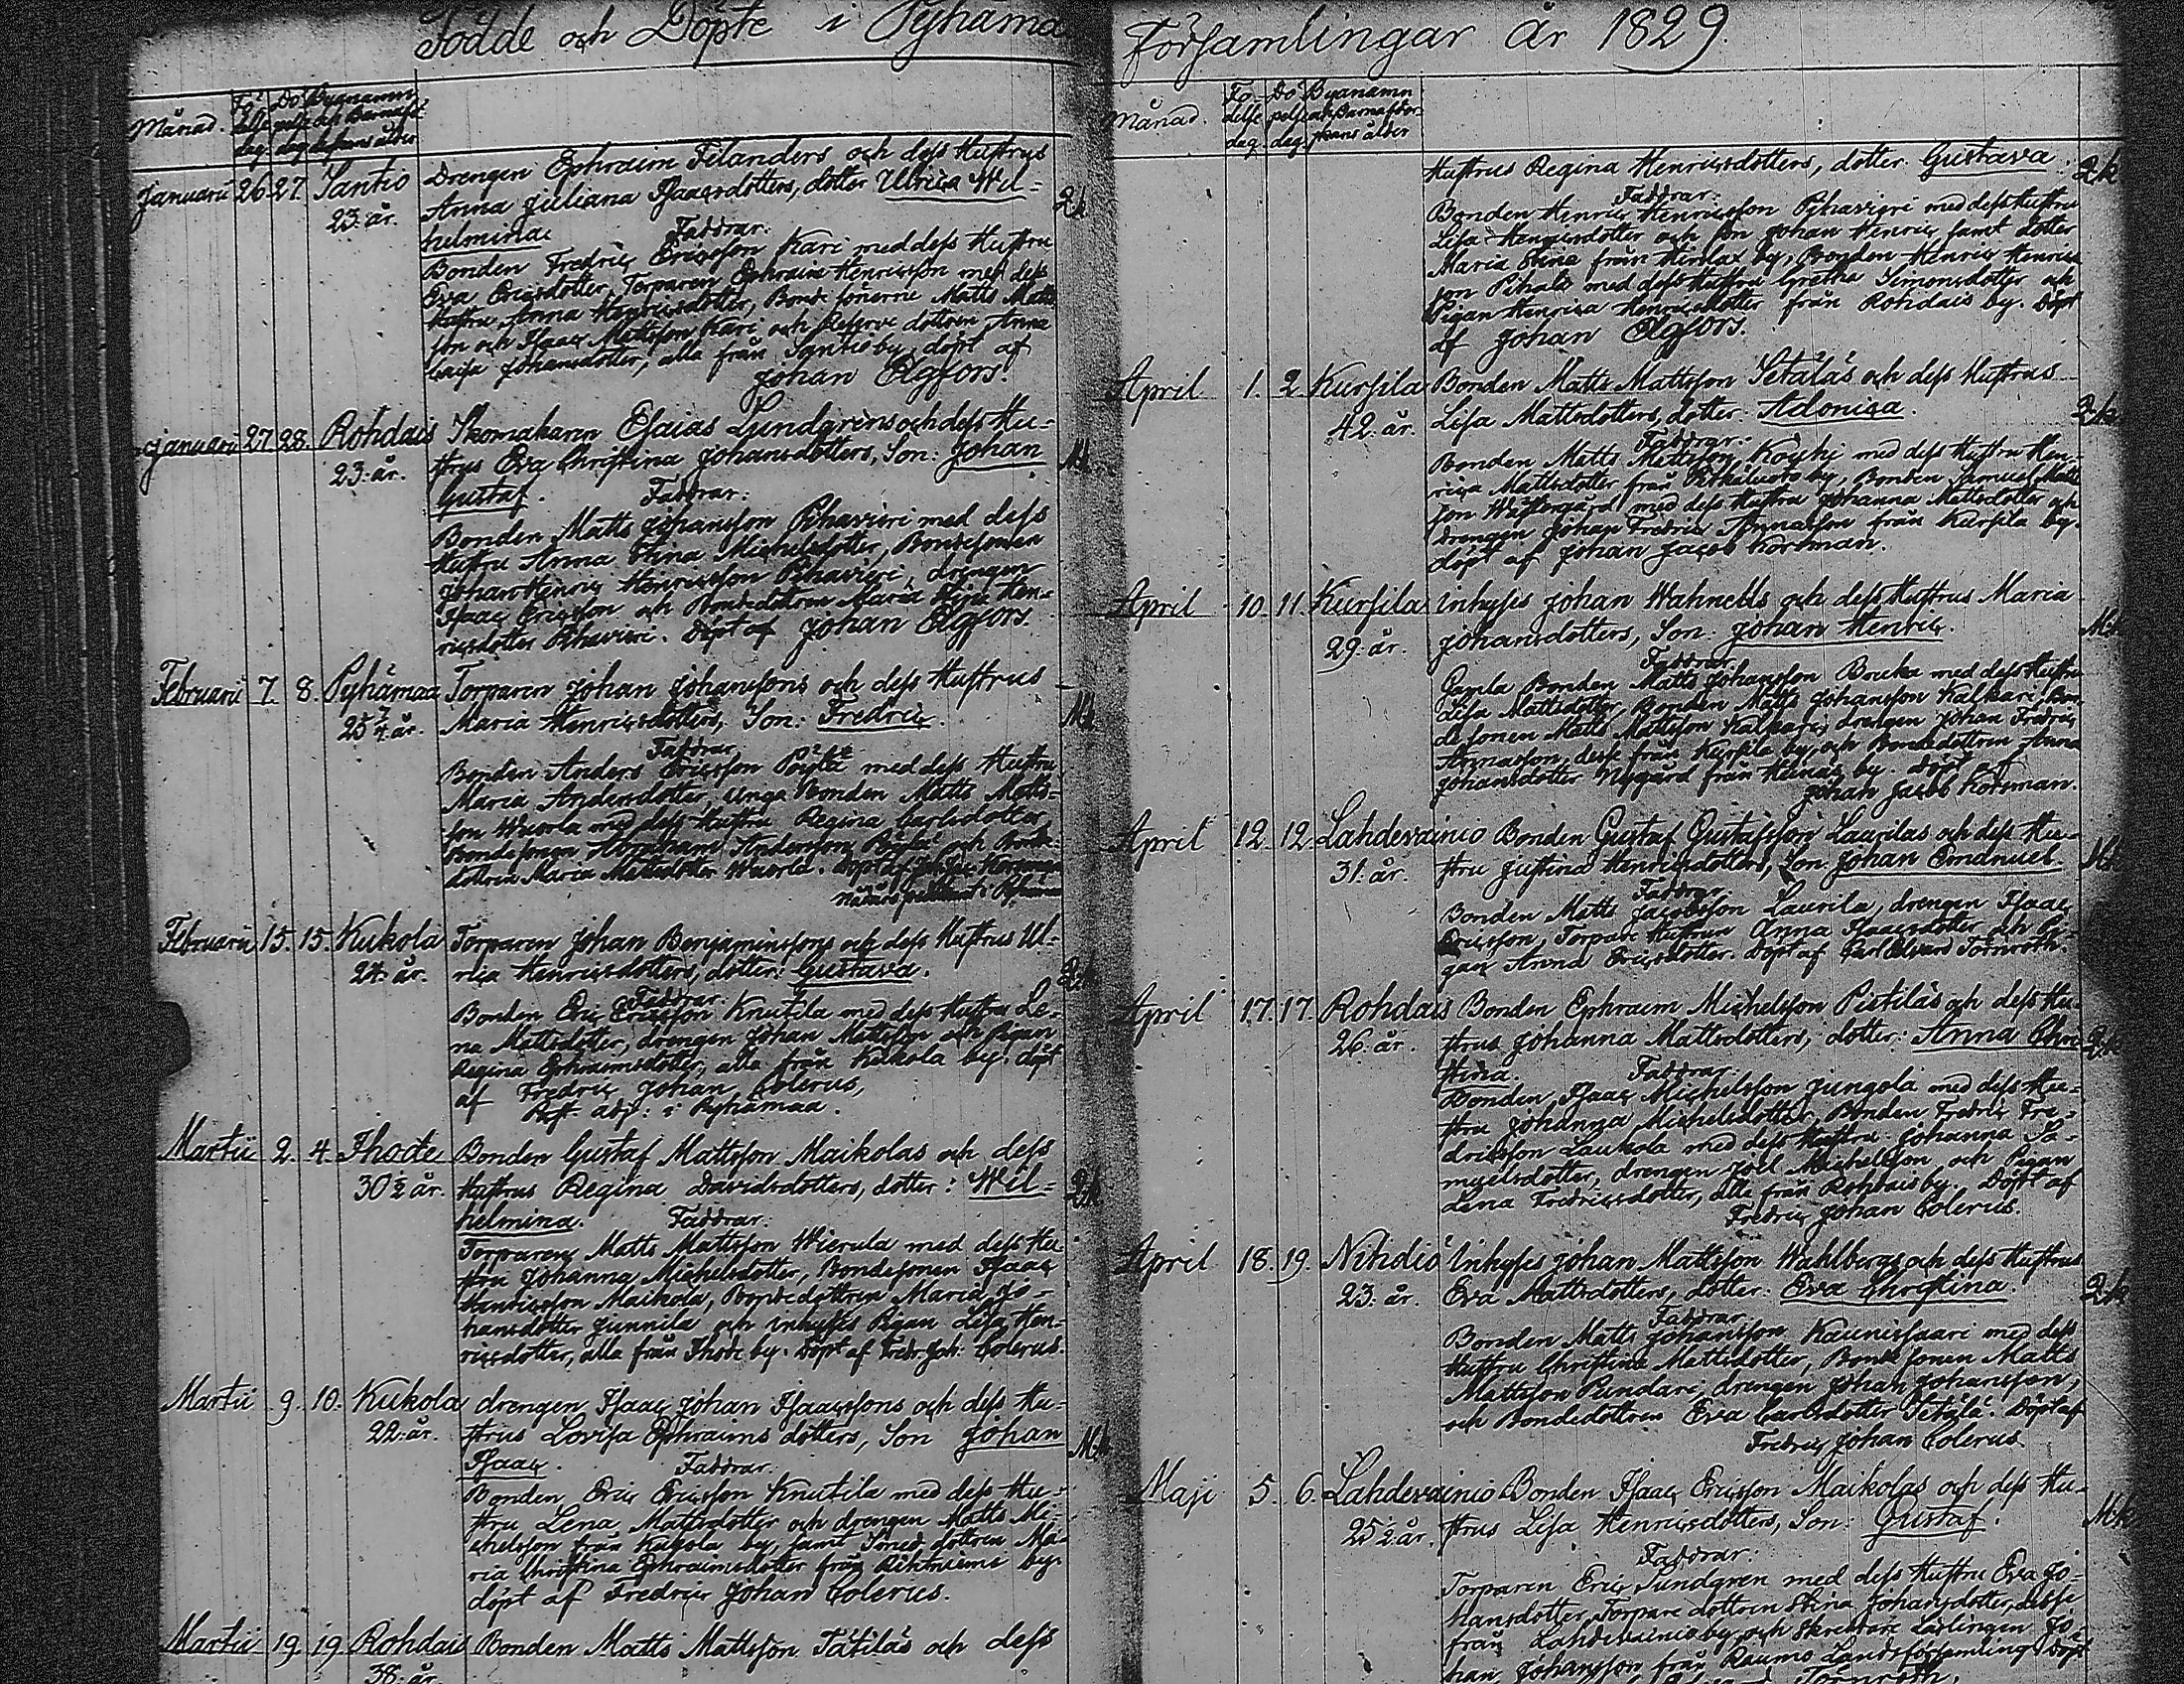 Födde och Döpte i Pyhäma
Månad. Fö- delse dag. Dö- pelse dag. Bynamn och Barnaföderskans ålder
Januarii 26. 27. Santio Drengen Ephraim Filanders och dess Hustrus
23. år. Anna Juliana Isaacsdotters, dotter Ulrica Wil-
helmina. Faddrar:
Bonden Fredric Ericsson Kari med dess Hustru
Eva Ericsdotter, Torparen Ephraim Henricsson med dess
Hustru Anna Henricsdotter, Bonde sönerne Matts Matts
son och Isaac Mattsson Kari och Reserve dottren Anna
Caisa Johansdotter, alla från Santio by, döpt af
Johan Elgfors.
Januarii 27. 28. Rohdais Skomakaren Esaias Lundgrens och dess Hu-
23. år. strus Eva Christina Johansdotters, Son: Johan
Gustaf. Faddrar:
Bonden Matts Johansson Pihavieri med dess
Hustru Anna Stina Michelsdotter, Bondesonen
Johan Henric Henricsson Pihavieri, drengen
Isaac Ericsson och Bondedottren Maria Stina Hen-
ricsdotter Pihavieri. Döpt af Johan Elgfors.
Februarii 7. 8. Pyhämaa Torparen Johan Johanssons och dess Hustrus
25 år. Maria Henricsdotters, Son: Fredric.
Faddrar
Bonden Anders Ericsson Pöytä med dess Hustru
Maria Andersdotter, Unga Bonden Matts Matts-
son Wuorla med dess Hustru Regina Carlsdotter,
Bondesonen Abraham Andersson Pöytä och Bonde-
dottren Maria Mattsdotter Wuorla. Döpt af
Februarii 15. 15. Kukola Torparen Johan Benjaminssons och dess Hustrus Ul-
24. år. rica Henricsdotters, dotter: Gustava.
Faddrar:
Bonden Eric Ericsson Knutila med dess Hustru Le-
na Mattsdotter, drengen Johan Mattsson och Pigan
Regina Ephraimsdotter, alla från Kukola by. döpt
af Fredric Johan Colerus,
Past. adj: i Pyhämaa.
Martii 2. 4. Ihode Bonden Gustaf Mattsson Maikolas och dess
30 ½ år. Hustrus Regina Davidsdotters, dotter: Wil-
helmina. Faddrar:
Torparen Matts Mattsson Wierula med dess Hu-
stru Johanna Michelsdotter, Bondesonen Isaac
Henricsson Maikola, Bondedottren Maria Jo-
hansdotter Junnila och inhyses Pigan Lisa Hen-
ricsdotter, alla från Ihode by. Döpt af Fredr Joh: Colerus.
Martii 9. 10. Kukola drengen Isaac Johan Isaacssons och dess Hu-
22. år. strus Lovisa Ephraims dotters, Son Johan
Isaac. Faddrar:
Bonden Eric Ericsson Knutila med dess Hu-
stru Lena Mattsdotter och drengen Matts Mi-
chelsson från Kukola by, samt dottren Ma-
ria Christina Ephraimsdotter från by.
döpt af Fredric Johan Colerus.
Martii 19. 19. Rohdais Bonden Matts Mattsson Tätiläs och dess
38. år.
Församlingar År 1829.
Månad. Fö- delse dag. Dö- pelse dag. Bynamn och Barnaföderskans ålder
Hustrus Regina Henricsdotters, dotter: Gustava.
Faddrar:
Bonden Henric Henricsson Pihavieri med dess Hustru
Lisa Henricsdotter och son Johan Henric, samt dotter
Maria Stina från Hirslax by, Bonden Henric Henrics
son Pihala med dess Hustru Gretha Simonsdotter och
Pigan Henrica Henricsdotter från Rohdais by. Döpt
af Johan Elgfors.
April 1. 2. Kursila Bonden Matts Mattsson Setäläs och dess Hustrus
42. år. Lisa Mattsdotters, dotter: Adonica.
Faddrar:
Bonden Matts Mattsson Kouki med dess Hustru Hen-
rica Mattsdotter från Pitkäluoto by, Bonden Samuel Matts
son Westergård med dess Hustru Johanna Mattsdotter och
drengen Johan Fredric Annasson från Kursila by.
döpt af Johan Jacob Korsman.
April 10. 11. Kursila Inhyses Johan Wahnells och dess Hustrus Maria
29. år. Johansdotters, Son: Johan Henric.
Faddrar
Gamla Bonden Matts Johansson Bruka med dess Hustru
Lisa Mattsdotter, Bonden Matts Johansson Kalkari, Bon-
de sonen Matts Mattsson Kalkari, drengen Johan Fredric
Annasson, desse från Kursila by, och Bondedottren Anna
Johansdotter Nygård från by. Döpt af
Johan Jacob Korsman.
April 12. 12. Lahdevainio Bonden Gustaf Gustafsson Laurilas och dess Hu-
31. år. stru Justina Henricsdotters, Son: Johan Emanuel.
Faddrar
Bonden Matts Jacobsson Laurila, drengen Isaac
Ericsson, Torpare Hustrun Anna Isaacsdotter och Pi-
gan Anna Ericsdotter. Döpt af Carl Edvard Törnroth.
April 17. 17. Rohdais Bonden Ephraim Michelsson Pietiläs och dess Hu-
26. år. strus Johanna Mattsdotters, dotter: Anna Chri-
stina. Faddrar
Bonden Isaac Michelsson Jungola med dess Hu-
stru Johanna Michelsdotter, Bonden Fredric Fre-
dricsson Laukola med dess Hustru Johanna Sa-
muelsdotter, drengen Joel Michelsson och Pigan
Lena Fredricsdotter, alla från Rohdais by. Döpt af
Fredric Johan Colerus.
April 18. 19. Nihdiö Inhyses Johan Mattsson Wahlbergs och dess Hustrus
23. år. Eva Mattsdotters, dotter: Eva Christina.
Faddrar
Bonden Matts Johansson Kaunissaari med dess
Hustru Christina Mattsdotter, Bonde sonen Matts
Mattsson Pundari, drengen Johan Johansson,
och Bondedottren Eva Carlsdotter Setälä. Döpt af
Fredric Johan Colerus.
Maji 5. 6. Lahdevainio Bonden Isaac Ericsson Maikolas och dess Hu-
25 ½ år. strus Lisa Henricsdotters, Son: Gustaf.
Faddrar:
Torparen Eric Sundgren med dess Hustru Eva Jo-
hansdotter, Torpare dottren Stina Johansdotter, desse
från Lahdevainio by, och Skreddare Lärlingen Jo-
han Johansson från Raumo Landsförsamling. Döpt
Törnroth.